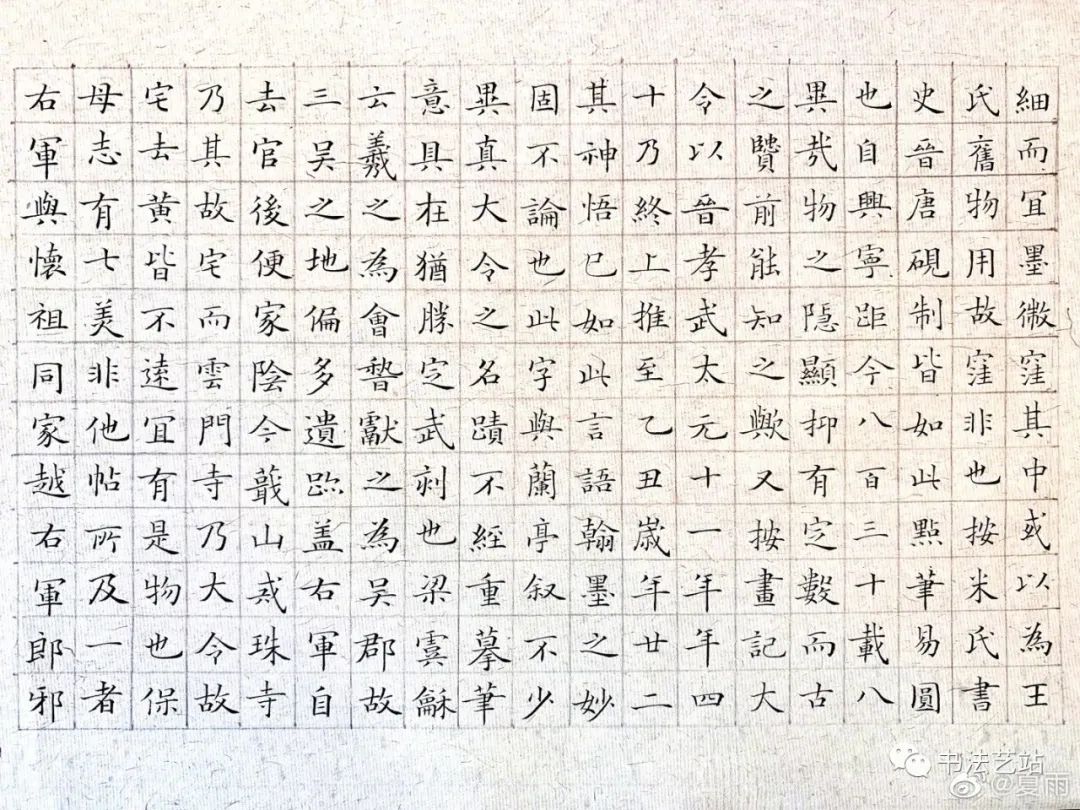 細而宜墨微窪其中或以為王
氏舊物用故窪非也按米氏書
史晉唐硯制皆如此點筆易圓
也自興寧距今八百三十載八
異哉物之隱顯抑有定數而古
之賢前能知之歟又按畫記大
令以晉孝武太元十一年年四
十乃終上推至乙丑歲年廿二
其神悟已如此言語翰墨之妙
固不論也此字與蘭亭叙不少
異真大令之名蹟不經重摹筆
意具在猶勝定武刹也梁虞龢
云羲之為會稽獻之為吳郡故
三吳之地偏多遺跡盖右軍自
去官後便家陰今蕺山戒珠寺
乃其故宅而雲門寺乃大令故
宅去黄皆不遠宜有是物也保
母志有七美非他帖所及一者
右軍與懷祖同家越右軍郎邪
书法艺站
@夏雨